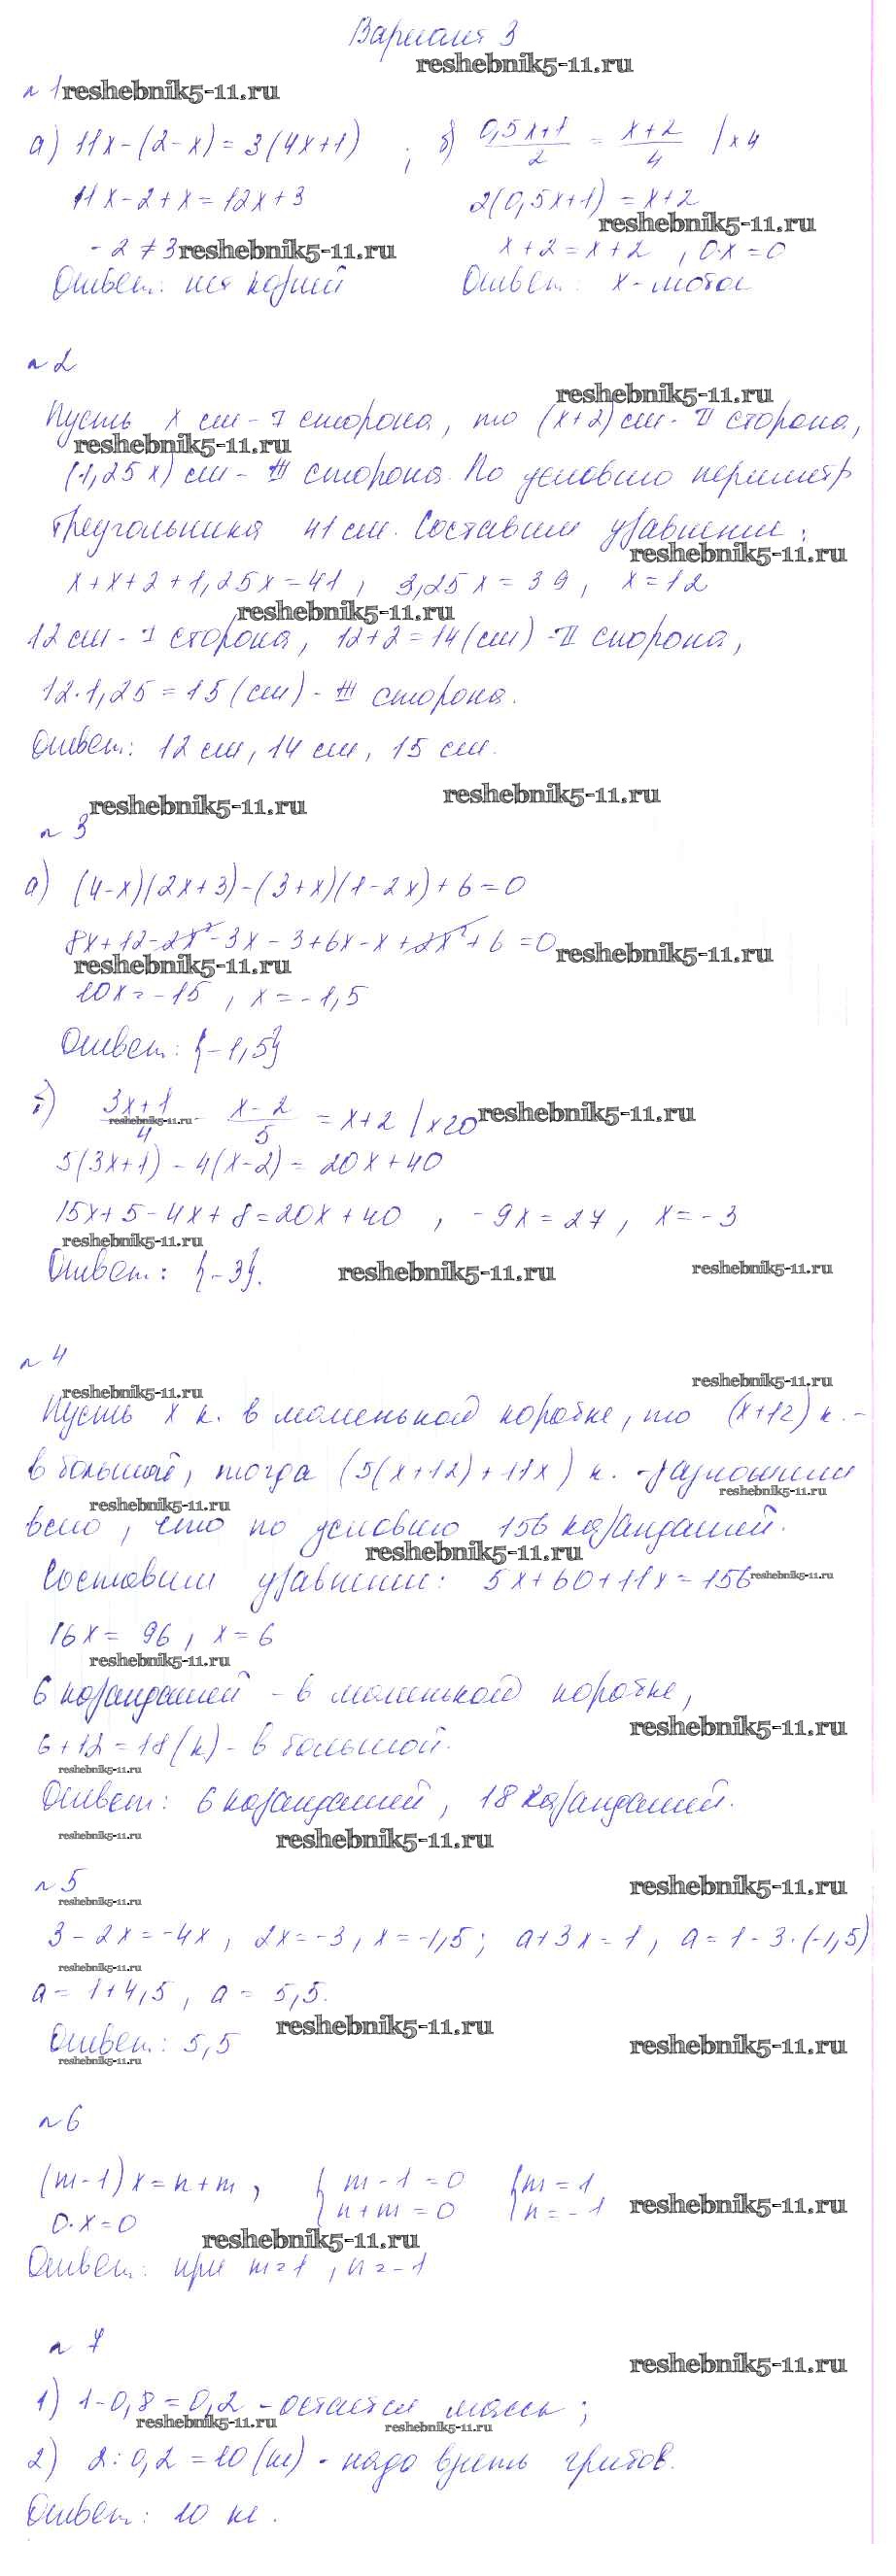 Вариант 3
reshebnik5-11.ru
№1 reshebnik5-11.ru
а) 11x-(2-x)=3(4x+1) ; б) (0,5x+1)/2 = (x+2)/4 |×4
11x-2+x=12x+3
2(0,5x+1)=x+2
reshebnik5-11.ru
-2≠3 reshebnik5-11.ru
x+2=x+2 , 0·x=0
Ответ: нет корней
Ответ: x-любое
№2
reshebnik5-11.ru
Пусть x см - I сторона, то (x+2) см - II сторона,
reshebnik5-11.ru
(1,25x) см - III сторона. По условию периметр
треугольника 41 см. Составим уравнение:
reshebnik5-11.ru
x+x+2+1,25x=41, 3,25x=39, x=12
reshebnik5-11.ru
12 см - I сторона, 12+2=14(см) - II сторона,
12·1,25=15(см) - III сторона.
Ответ: 12 см, 14 см, 15 см.
reshebnik5-11.ru reshebnik5-11.ru
№3
а) (4-x)(2x+3)-(3+x)(1-2x)+6=0
8x+12-2x²-3x-3+6x-x+2x²+6=0
reshebnik5-11.ru
reshebnik5-11.ru
10x=-15, x=-1,5
Ответ: {-1,5}
б) (3x+1)/4 - (x-2)/5 = x+2 |×20 reshebnik5-11.ru
reshebnik5-11.ru
5(3x+1)-4(x-2)=20x+40
15x+5-4x+8=20x+40, -9x=27, x=-3
reshebnik5-11.ru
Ответ: {-3}. reshebnik5-11.ru reshebnik5-11.ru
№4
reshebnik5-11.ru reshebnik5-11.ru
Пусть x к. в маленькой коробке, то (x+12) к. -
в большой, тогда (5(x+12)+11x) к. - разложили
reshebnik5-11.ru
reshebnik5-11.ru
всего, что по условию 156 карандашей.
reshebnik5-11.ru
Составим уравнение: 5x+60+11x=156 reshebnik5-11.ru
16x=96, x=6
reshebnik5-11.ru
6 карандашей - в маленькой коробке,
reshebnik5-11.ru
6+12=18(к) - в большой.
reshebnik5-11.ru
Ответ: 6 карандашей, 18 карандашей.
reshebnik5-11.ru reshebnik5-11.ru
№5 reshebnik5-11.ru
reshebnik5-11.ru
3-2x=-4x, 2x=-3, x=-1,5; a+3x=1, a=1-3·(-1,5)
reshebnik5-11.ru
a=1+4,5, a=5,5.
reshebnik5-11.ru
Ответ: 5,5 reshebnik5-11.ru
reshebnik5-11.ru
№6
(m-1)x=n+m, { m-1=0 {m=1
0·x=0 n+m=0 n=-1 reshebnik5-11.ru
reshebnik5-11.ru
Ответ: при m=1, n=-1
№7
reshebnik5-11.ru
1) 1-0,8=0,2 - остается массы;
reshebnik5-11.ru reshebnik5-11.ru
2) 2:0,2=10(кг) - надо взять грибов.
Ответ: 10 кг.